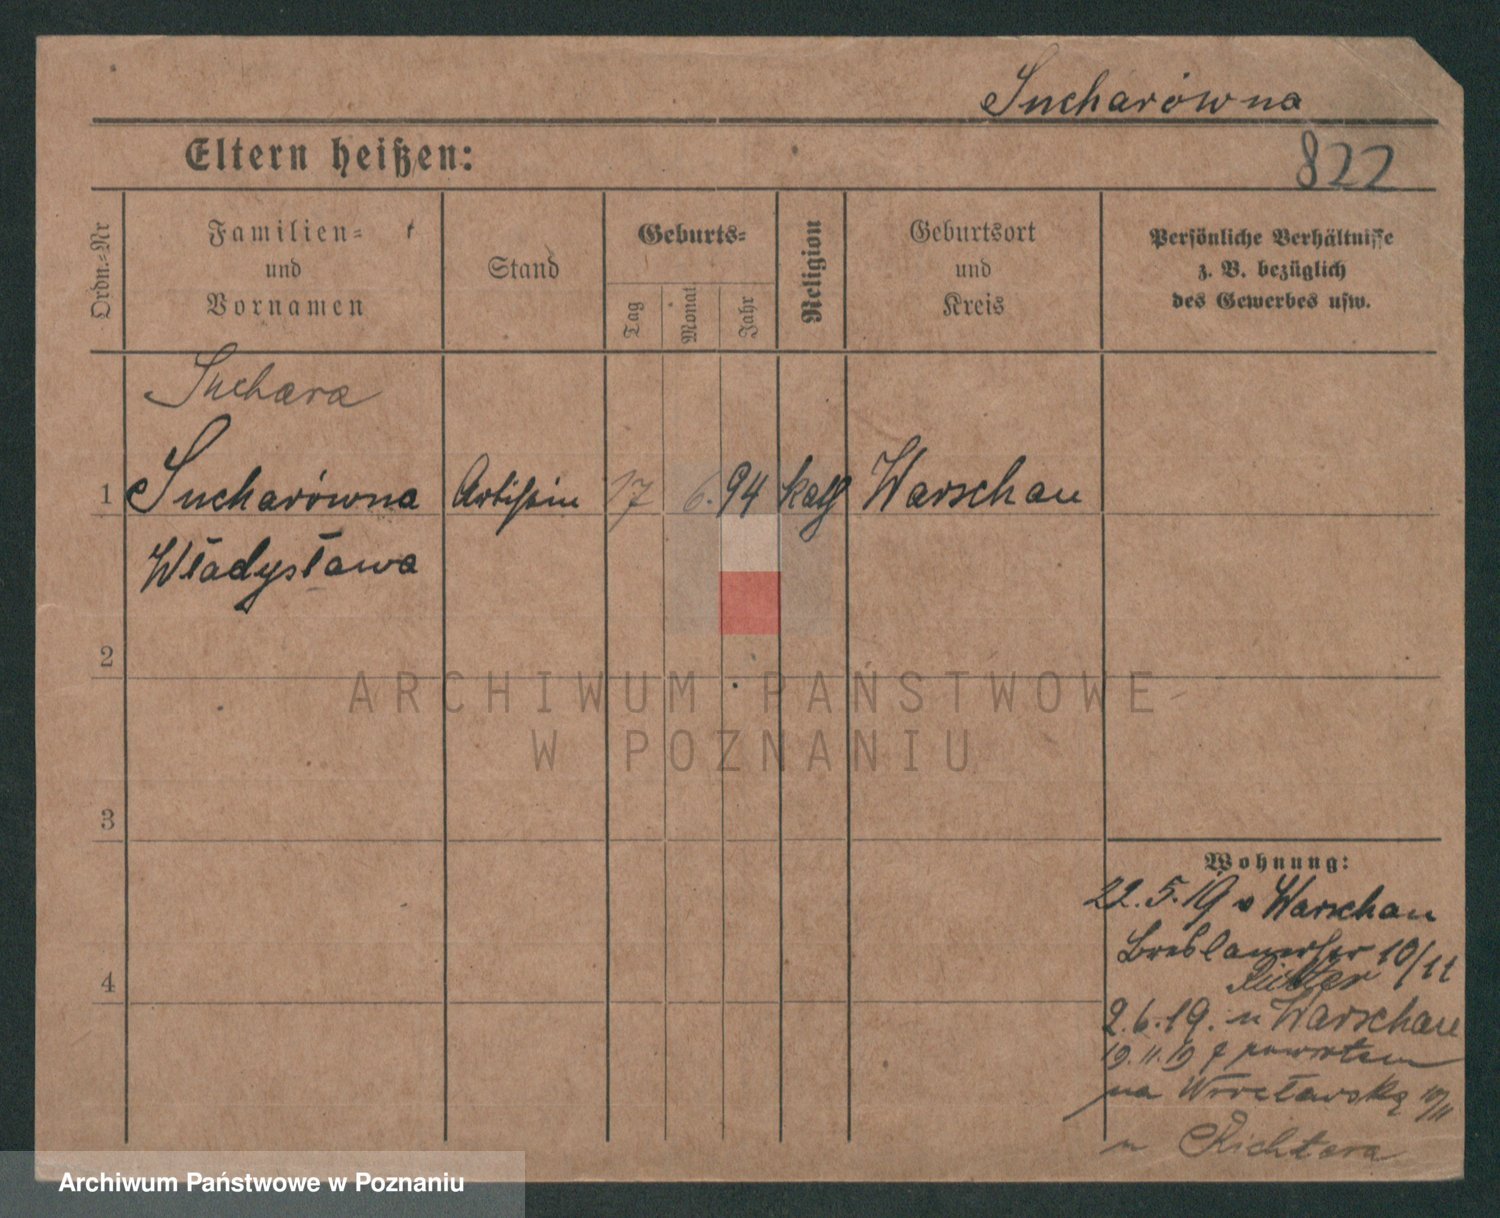 Sucharówna
Eltern heißen:
822
Ordn.-Nr
Familien-
und
Vornamen
Stand
Geburts-
Tag
Monat
Jahr
Religion
Geburtsort
und
Kreis
Persönliche Verhältnisse
z. B. bezüglich
des Gewerbes usw.
Suchara
1 Sucharówna Artistin 17 6. 94 kath Warschau
Władysława
2
ARCHIWUM PAŃSTWOWE
W POZNANIU
3
4
Wohnung:
22.5.19 v Warschau
Breslauerstr 10/11
Richter
2.6.19. n Warschau
19.11.19 z powrotem
na Wrocławską 10/11
u Richtera
Archiwum Państwowe w Poznaniu